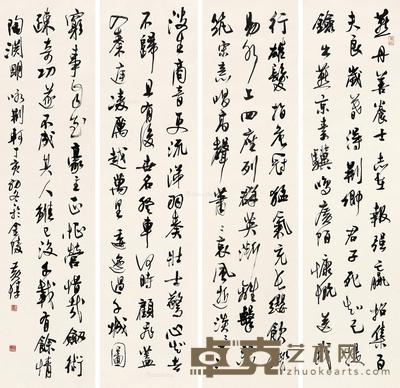 燕丹善養士志在報強嬴招集百
夫良歲暮得荆卿君子死知己提
劍出燕京素驥鳴廣陌慷慨送我
行雄髮指危冠猛氣充長纓飲餞
易水上四座列群英漸離擊悲
筑宋意唱高聲蕭蕭哀風逝淡淡寒
波生商音更流涕羽奏壯士驚心知去
不歸且有後世名登車何時顧飛蓋
入秦庭凌厲越萬里逶迤過千城圖
窮事自至豪主正怔營惜哉劍術
疏奇功遂不成其人雖已沒千載有餘情
陶淵明詠荆軻丁亥初冬於金陵黃惇
艺术网